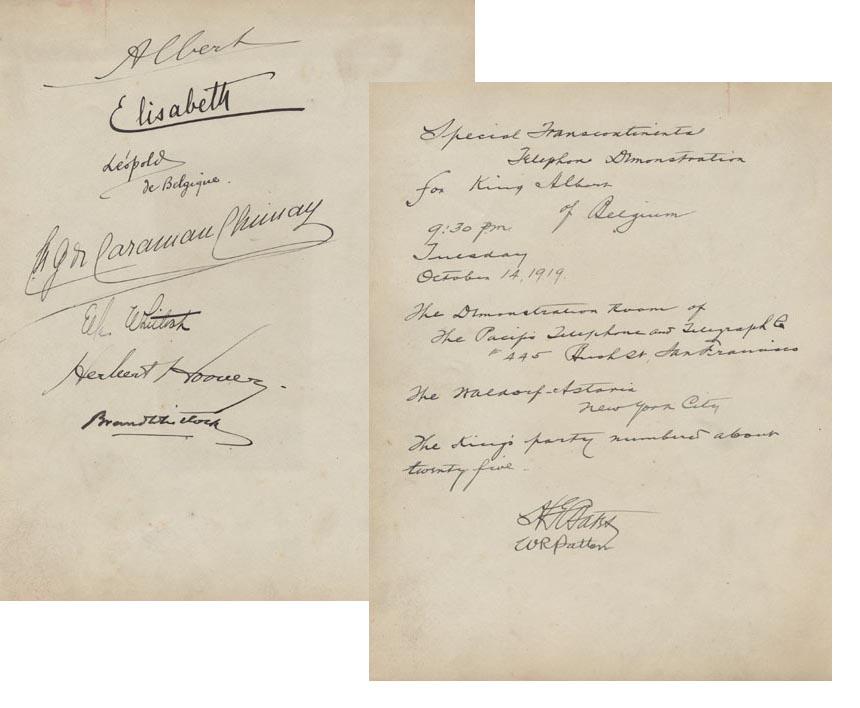 Albert
Elisabeth
Léopold
de Belgique.
de Caraman Chimay
Whitlock
Herbert Hoover.
Brand Whitlock
Special Transcontinental
Telephone Demonstration
for King Albert
of Belgium
9:30 p.m.
Tuesday
October 14, 1919.
The Demonstration Room of
The Pacific Telephone and Telegraph Co
# 445 Bush St., San Francisco
The Waldorf-Astoria
New York City
The King's party numbered about
twenty five.
W R Patton